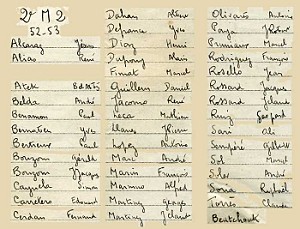 2e M 2
52-53
Alcaraz Jean
Alias René
Atek
Belda André
Benamon Paul
Bernatier Yves
Bertrieux Paul
Bouzom Gérald
Bouzom Jacques
Caparela Simon
Carretero Edouard
Cerdan Fernand
Dahan
Defrance Yves
Diaz Henri
Dupouy Alain
Finot Marcel
Guillem Daniel
Jacomo René
Leca Mathieu
Llanes Pierre
Lopez Antoine
Marc André
Marin François
Marino Alfred
Martinez Georges
Martinez
Olivarès Antoine
Paya
Pruneaux Marcel
Rodriguez François
Rosello Jean
Rossard Jacques
Rossard Claude
Ruiz Gaspard
Sari Ali
Sempéré Gilbert
Sol Marcel
Soler André
Soria Raphaël
Torrès Claude
Bentchouk